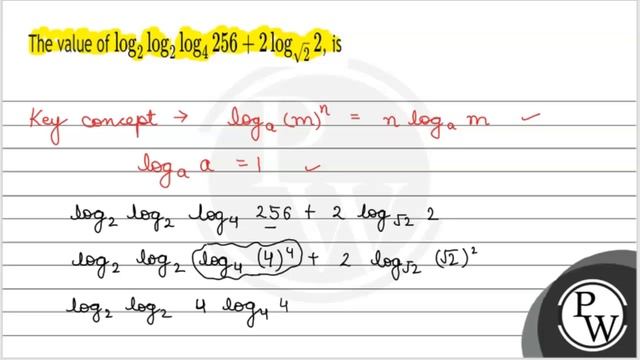 The value of log₂ log₂ log₄ 256 + 2 log_√2 2, is
Key concept → logₐ (m)ⁿ = n logₐ m ✓
logₐ a = 1 ✓
log₂ log₂ log₄ 256 + 2 log_√2 2
log₂ log₂ log₄ (4)⁴ + 2 log_√2 (√2)²
log₂ log₂ 4 log₄ 4
PW
PW